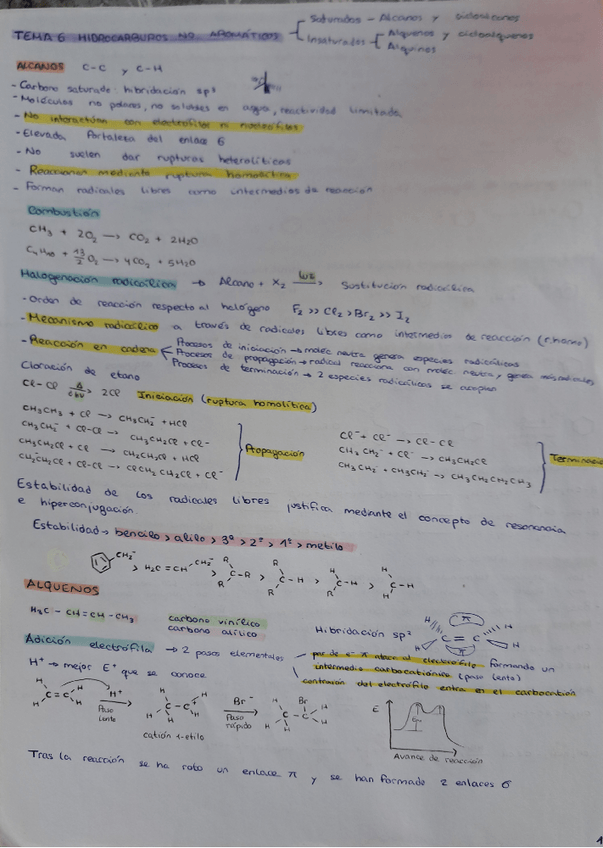 TEMA 6 HIDROCARBUROS NO AROMÁTICOS
Saturados - Alcanos y cicloalcanos
Insaturados
Alquenos y cicloalquenos
Alquinos
ALCANOS C-C y C-H
- Carbono saturado: hibridación sp³
- Moléculas no polares, no solubles en agua, reactividad limitada.
- No interactúan con electrófilos ni nucleófilos
- Elevada fortaleza del enlace σ
- No suelen dar rupturas heterolíticas
- Reaccionan mediante ruptura homolítica
- Forman radicales libres como intermedios de reacción
Combustión
CH₃ + 2O₂ → CO₂ + 2H₂O
C₄H₁₀ + 13/2 O₂ → 4CO₂ + 5H₂O
Halogenación radicálica → Alcano + X₂ → Sustitución radicálica
- Orden de reacción respecto al halógeno F₂ >> Cl₂ > Br₂ >> I₂
- Mecanismo radicálico a través de radicales libres como intermedio de reacción
- Reacción en cadena
Procesos de iniciación → moléc neutra genera especies radicálicas
Procesos de propagación → radical reacciona con moléc neutra, genera
Procesos de terminación → 2 especies radicálicas se acoplan
Cloración de etano
Cl-Cl → 2Cl Iniciación (ruptura homolítica)
CH₃CH₃ + Cl → CH₃CH₂ + HCl
CH₃CH₂ + Cl-Cl → CH₃CH₂Cl + Cl
CH₃CH₂Cl + Cl → CH₂CH₂Cl + HCl
CH₂CH₂Cl + Cl-Cl → ClCH₂CH₂Cl + Cl
Propagación
Cl + Cl → Cl-Cl
CH₃CH₂ + Cl → CH₃CH₂Cl
CH₃CH₂ + CH₃CH₂ → CH₃CH₂CH₂CH₃
Terminació
Estabilidad de los radicales libres justifica mediante el concepto de resonancia
e hiperconjugación.
Estabilidad → bencilo > alilo > 3º > 2º > 1º > metilo
CH₂ > H₂C=CH-CH₂ > R R C-R > R R C-H > H R C-H > H H C-H
ALQUENOS
H₃C-CH=CH-CH₃
carbono vinílico
carbono alílico
Hibridación sp²
π
H H C=C H H
Adición electrófila → 2 pasos elementales
par de e⁻ π ataca al electrófilo formando un
intermedio carbocatiónico (paso lento)
contraión del electrófilo entra en el carbocatión
H⁺ → mejor E⁺ que se conoce.
H H C=C H H
H⁺
Paso lento
catión 1-etilo
Br⁻
Paso rápido
Br
E
Avance de reacción
Tras la reacción se ha roto un enlace π y se han formado 2 enlaces σ
1